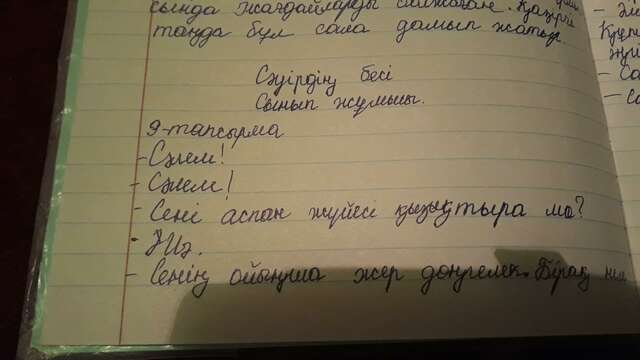 сында жағдайларды
таңда бұл сала дамып жатыр.
Сәуірдің бесі
Сынып жұмысы.
9-тапсырма
- Сәлем!
- Сәлем!
- Сені аспан жүйесі қызықтыра ма?
- Иә.
- Сенің ойыңша жер дөңгелек. Бірақ